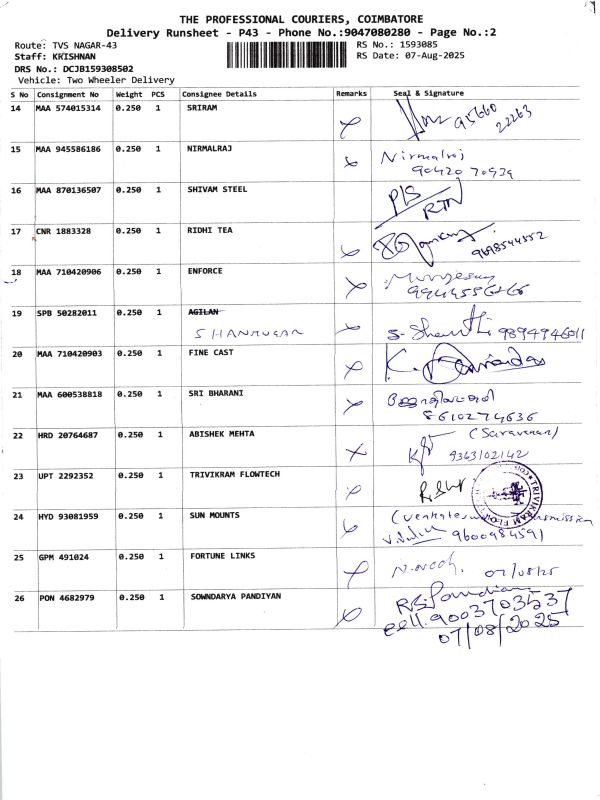 THE PROFESSIONAL COURIERS, COIMBATORE
Delivery Runsheet - P43 - Phone No.:9047080280 - Page No.:2
Route: TVS NAGAR-43
Staff: KRISHNAN
DRS No.: DCJB159308502
Vehicle: Two Wheeler Delivery
RS No.: 1593085
RS Date: 07-Aug-2025
S No Consignment No Weight PCS Consignee Details Remarks Seal & Signature
14 MAA 574015314 0.250 1 SRIRAM 95660
22263
15 MAA 945586186 0.250 1 NIRMALRAJ Nirmalraj
90420 70939
16 MAA 870136507 0.250 1 SHIVAM STEEL P/S
RTN
17 CNR 1883328 0.250 1 RIDHI TEA 9698544552
18 MAA 710420906 0.250 1 ENFORCE Murugesan
19 SPB 50282011 0.250 1 AGILAN
SHANMUGAM S. Shanthi 9894946011
20 MAA 710420903 0.250 1 FINE CAST
21 MAA 600538818 0.250 1 SRI BHARANI
8610274636
22 HRD 20764687 0.250 1 ABISHEK MEHTA (Saravanan)
9363102142
23 UPT 2292352 0.250 1 TRIVIKRAM FLOWTECH
24 HYD 93081959 0.250 1 SUN MOUNTS
9600984591
25 GPM 491024 0.250 1 FORTUNE LINKS 07/08/25
26 PON 4682979 0.250 1 SOWNDARYA PANDIYAN R.S. Pandian
cell.9003703537
07/08/2025